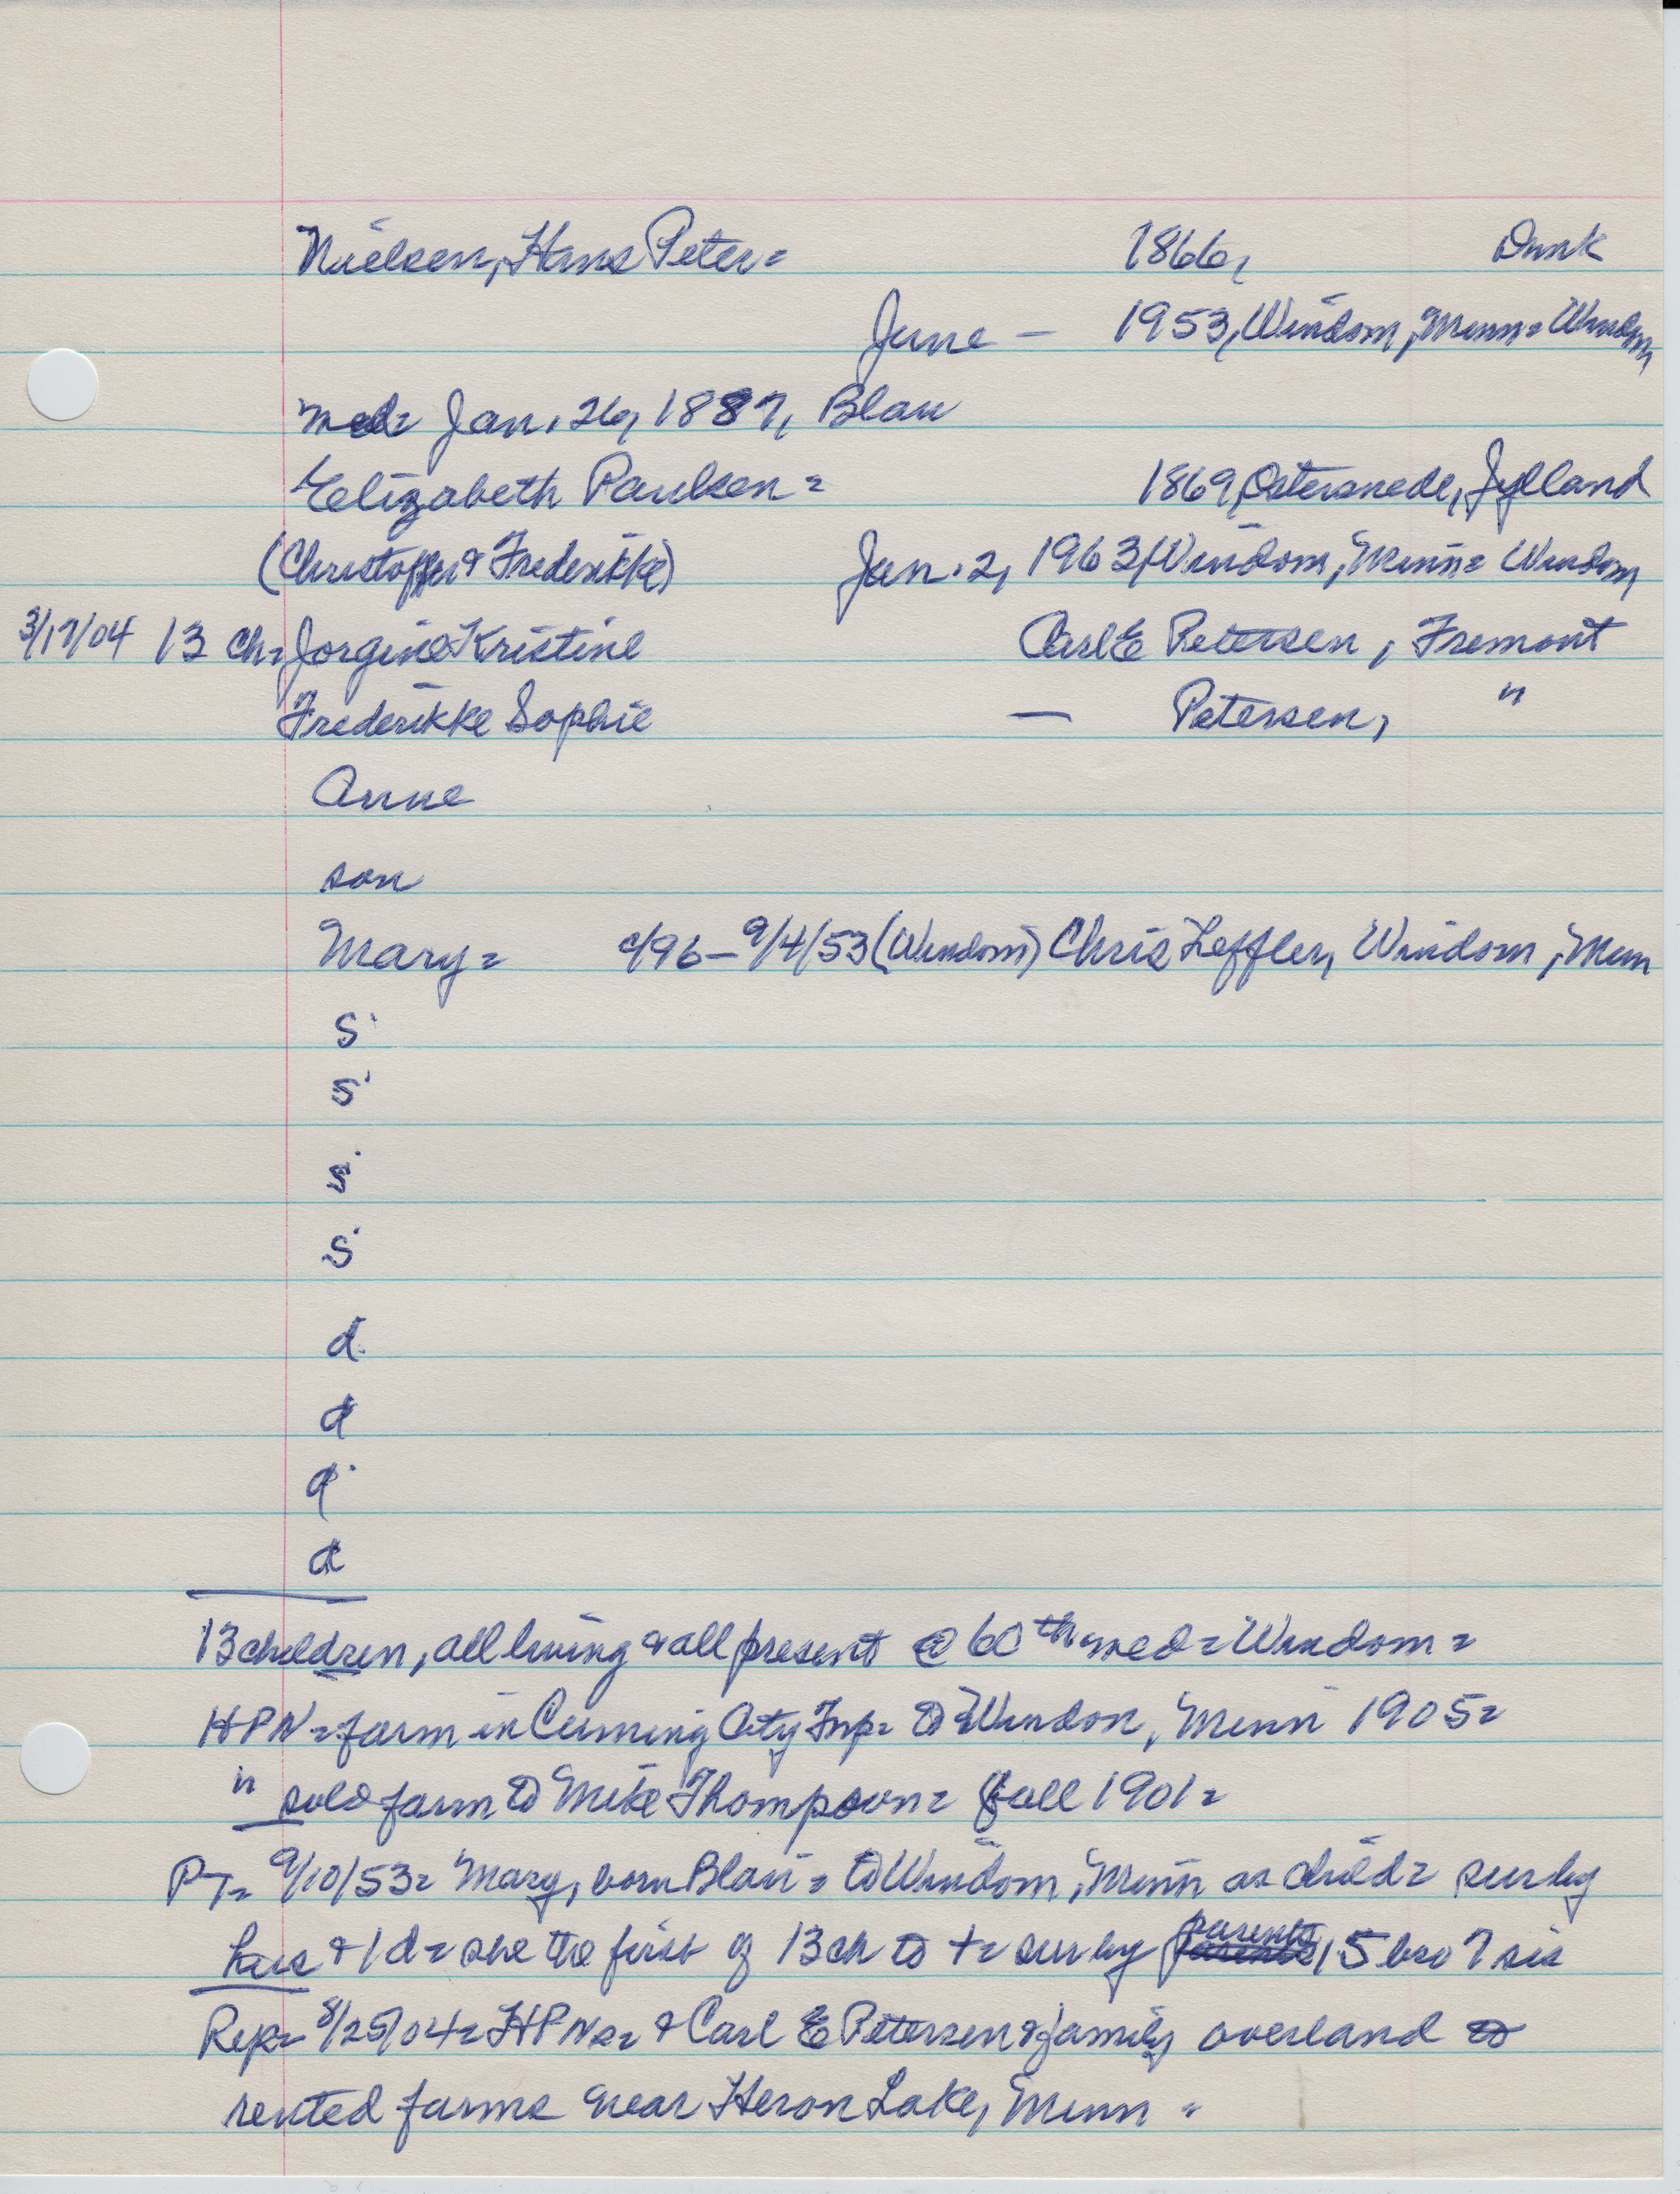 Nielsen, Hans Peter= 1866, Dnmk
June — 1953, Windom, Minn= Windom
med= Jan. 26, 1887, Blair
Elizabeth Paulsen= 1869, Ostersnede, Jylland
(Christoffer & Frederikke) Jan. 2, 1963, Windom, Minn= Windom
3/17/04 13 ch= Jorgine Kristine Carl E Petersen, Fremont
Frederikke Sophie — Petersen, "
Anne
son
Mary= c/96 – 9/4/53 (Windom) Chris Leffler, Windom, Minn
s
s
s
s
d
d
d
d
13 children, all living & all present @ 60th wed= Windom=
HPN= farm in Cuming City Twp= to Windom, Minn 1905=
" sold farm to Mike Thompson= fall 1901=
PT= 9/10/53= Mary, born Blair= to Windom, Minn as child= sur by
hus & 1 d= she the first of 13 ch to += sur by parents, 5 bro 7 sis
Rep= 8/25/04= HPNs= & Carl E Petersen & family overland to
rented farms near Heron Lake, Minn=